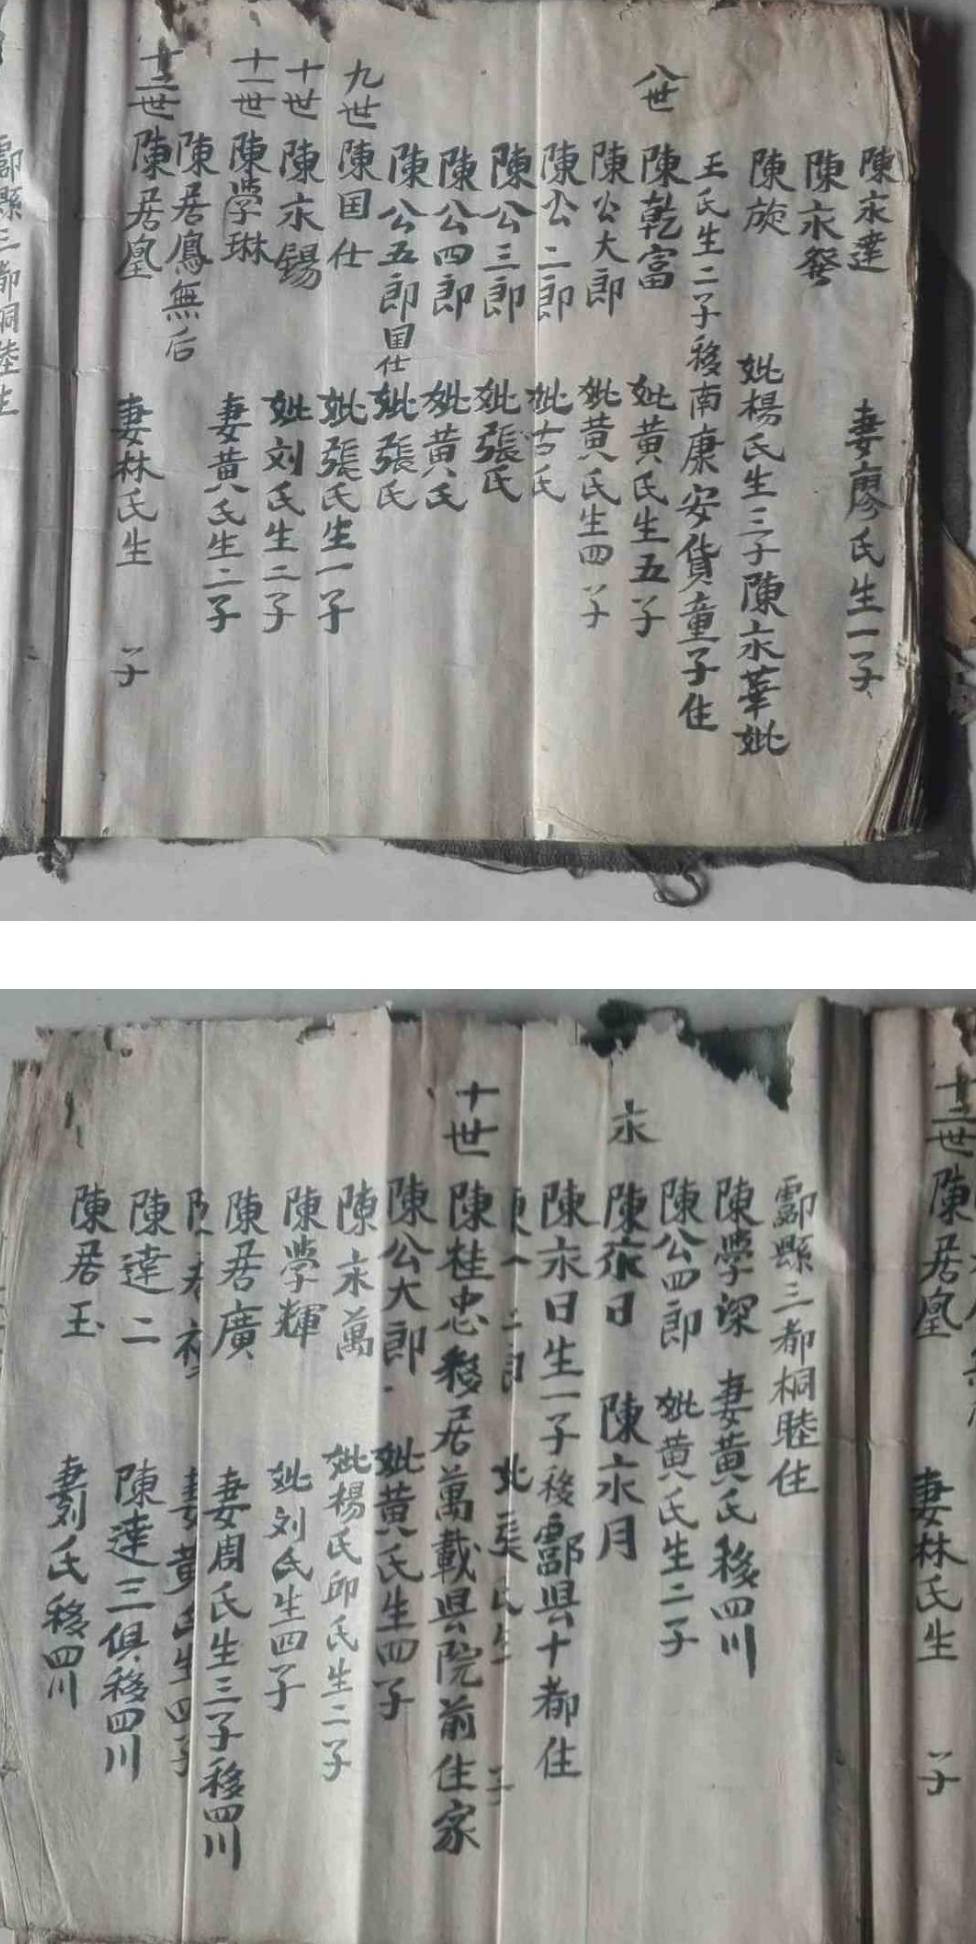 陳永達 妻廖氏生一子
陳永發
陳旋 妣楊氏生三子陳永華妣
王氏生二子移南康安貨童子住
八世 陳乾富 妣黃氏生五子
陳公大郎 妣黃氏生四子
陳公二郎 妣古氏
陳公三郎 妣張氏
陳公四郎 妣黃氏
陳公五郎国仕 妣張氏
九世 陳国仕 妣張氏生一子
十世 陳永錫 妣刘氏生二子
十一世 陳學琳 妻黃氏生二子
陳居鳳無后
十二世 陳居凰 妻林氏生 子
酃縣三都桐睦住
十二世 陳居凰 妻林氏生 子
酃縣三都桐睦住
陳學深 妻黃氏移四川
陳公四郎 妣黃氏生二子
永 陳永日 陳永月
陳永日生一子移酃县十都住
二郎 張氏生 子
十世 陳桂忠移居萬載县院前住家
陳公大郎 妣黃氏生四子
陳永萬 妣楊氏邱氏生二子
陳學輝 妣刘氏生四子
陳君廣 妻周氏生三子移四川
妻黃氏生四子
陳達二 陳達三俱移四川
陳居玉 妻刘氏移四川